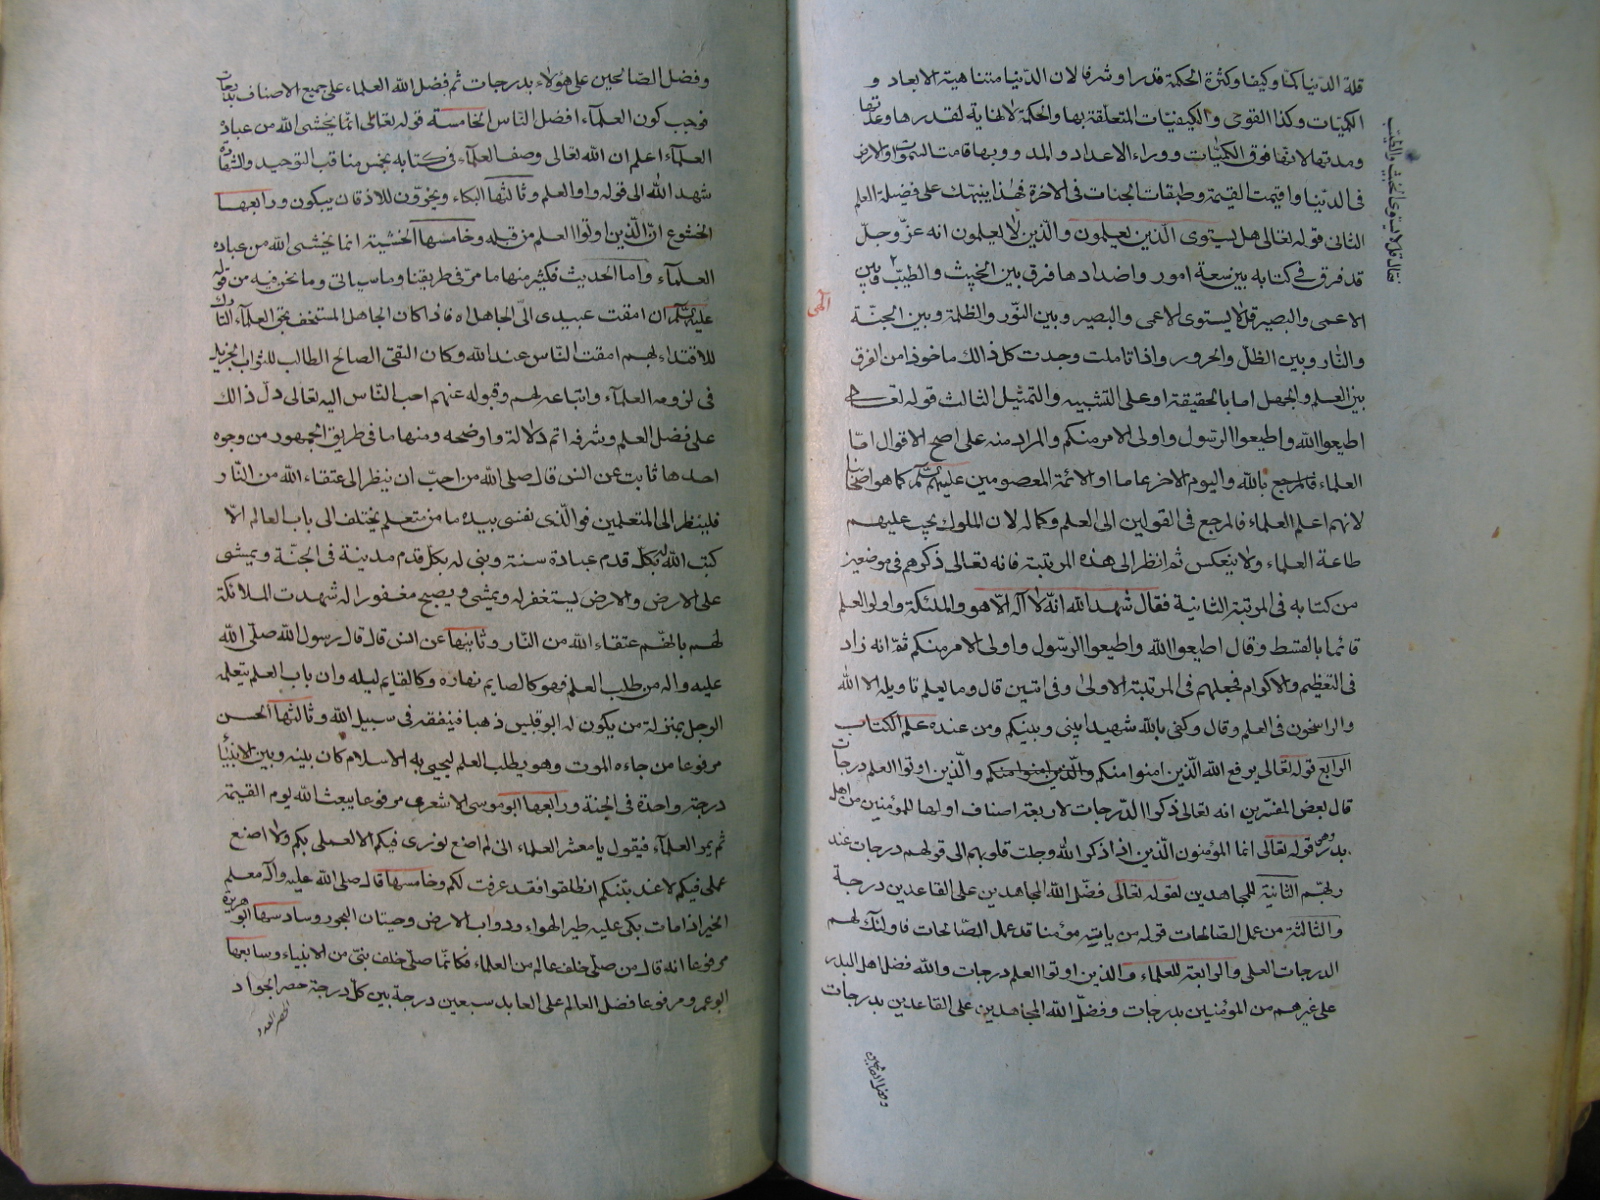 قلة الدنيا كمّا وكيفا وكثرة الحكمة قدرا وشرفا لان الدنيا متناهية الابعاد و
الكميّات وكذا القوى والكيفيّات المتعلّقة بها والحكمة لا نهاية لقدرها وعدتها
ومدتها لانها فوق الكميّات ووراء الاعداد والمدد وبها قامت السّموات والارض
فى الدّنيا واقيمت القيمة وطبقات الجنات فى الاخرة فهذا ينبهك على فضيلة العلم
الثانى قوله تعالى هل يستوى الّذين يعلمون والّذين لا يعلمون انه عزّ وجلّ
قد فرق فى كتابه بين سعة امور واضدادها فرق بين الخبيث والطيّب وبين
الاعمى والبصير قل لا يستوى الاعمى والبصير وبين النّور والظلمة وبين الجنّة
والنّار وبين الظلّ والحرور واذا تاملت وجدت كل ذالك ماخوذا من الفرق
بين العلم والجهل اما بالحقيقة او على التشبيه والتمثيل الثالث قوله تعالى
اطيعوا الله واطيعوا الرّسول واولى الامر منكم والمراد منه على اصح الاقوال امّا
العلماء بالله واليوم الاخر عاما او الائمة المعصومين عليهم السّلم كما هو
لانهم اعلم العلماء فالمرجع فى القولين الى العلم وكماله لان الملوك يجب عليهم
طاعة العلماء ولا ينعكس ثم انظر الى هذه المرتبة فانه تعالى ذكرهم فى موضعين
من كتابه فى المرتبة الثانية فقال شهد الله انه لا اله الّا هو والملئكة واولوا العلم
قائما بالقسط وقال اطيعوا الله واطيعوا الرّسول واولى الامر منكم ثمّ انه زاد
فى التعظيم والاكرام فجعلهم فى المرتبة الاولى وفى ايتين قال وما يعلم تاويله الا الله
والراسخون فى العلم وقال وكفى بالله شهيدا بينى وبينكم ومن عنده علم الكتاب
الرابع قوله تعالى يرفع الله الّذين امنوا منكم والّذين امنوا منكم والّذين اوتوا العلم درجات
قال بعض المفسّرين انه تعالى ذكر الدّرجات لاربعة اصناف اولها للمؤمنين من اهل
بدر وهى قوله تعالى انما المؤمنون الّذين اذا ذكر الله وجلت قلوبهم الى قولهم درجات عند
ربهم الثانية للمجاهدين لقوله تعالى فضّل الله المجاهدين على القاعدين درجة
والثالثة من عمل الصّالحات قوله من ياته مؤمنا قد عمل الصّالحات فاولئك لهم
الدرجات العلى والرابعة للعلماء والذين اوتوا العلم درجات والله فضل اهل البدر
على غيرهم من المؤمنين بدرجات وفضّل الله المجاهدين على القاعدين بدرجات
وفضل الصّالحين على هؤلاء بدرجات ثم فضل الله العلماء على جميع الاصناف بدرجات
فوجب كون العلمآء افضل النّاس الخامسة قوله تعالى انّما يخشى الله من عباده
العلمآء اعلم ان الله تعالى وصف العلمآء فى كتابه بخمس مناقب التوحيد والشهادة
شهد الله الى قوله واولوا العلم وثالثها البكاء ويخرّون للاذقان يبكون ورابعها
الخشوع انّ الّذين اوتوا العلم من قبله وخامسها الخشية انما يخشى الله من عباده
العلمآء واما الحديث فكثير منها ما مرّ فى طريقنا وما سياتى وما نحن فيه من قوله
عليه السّلم ان امقت عبيدى الىّ الجاهل اه فاذا كان الجاهل المستخف بحق العلمآء التارك
للاقتداء بهم امقت النّاس عند الله وكان التقى الصالح الطالب للثواب الجزيل
فى لزومه العلمآء واتباعه لهم وقبوله عنهم احب النّاس اليه تعالى دلّ ذالك
على فضل العلم وشرفه اتم دلالة واوضحه ومنها ما فى طريق الجمهور من وجوه
احدها ثابت عن انس قال صلى الله من احبّ ان ينظر الى عتقاء الله من النّار
فلينظر الى المتعلمين فوالّذى نفسى بيده ما من متعلم يختلف الى باب العالم الّا
كتب الله له بكلّ قدم عبادة سنة وبنى له بكل قدم مدينة فى الجنّة ويمشى
على الارض والارض ليستغفر له ويمشى ويصبح مغفورا له شهدت الملائكة
لهم بانّهم عتقاء الله من النّار وثانيها عن انس قال قال رسول الله صلّى الله
عليه واله من طلب العلم فهو كالصايم نهاره وكالقايم ليله وان باب العلم يتعلمه
الرجل بمنزلة من يكون له ابو قبيس ذهبا فينفقه فى سبيل الله وثالثها الحسن
مرفوعا من جاءه الموت وهو يطلب العلم ليحيى به الاسلام كان بينه وبين الانبيآء
درجة واحدة فى الجنة ورابعها ابو موسى الاشعرى مرفوعا يبعث الله يوم القيمة
ثم يمر العلمآء فيقول يا معشر العلماء انى لم اضع نورى فيكم الا لعملى بكم ولا اضع
عملى فيكم لا عذبتّكم انطلقوا فقد غفرت لكم وخامسها قال صلى الله عليه وآله معلم
الخير اذا مات بكى عليه طير الهواء ودواب الارض وحيتان البحور وسادسها ابو هريرة
مرفوعا انه قال من صلّى خلف عالم من العلماء فكانّما صلّى خلف نبىّ من الانبياء وسابعها
ابو عمر ومرفوعا فضل العالم على العابد سبعين درجة بين كلّ درجة حضر الجواد